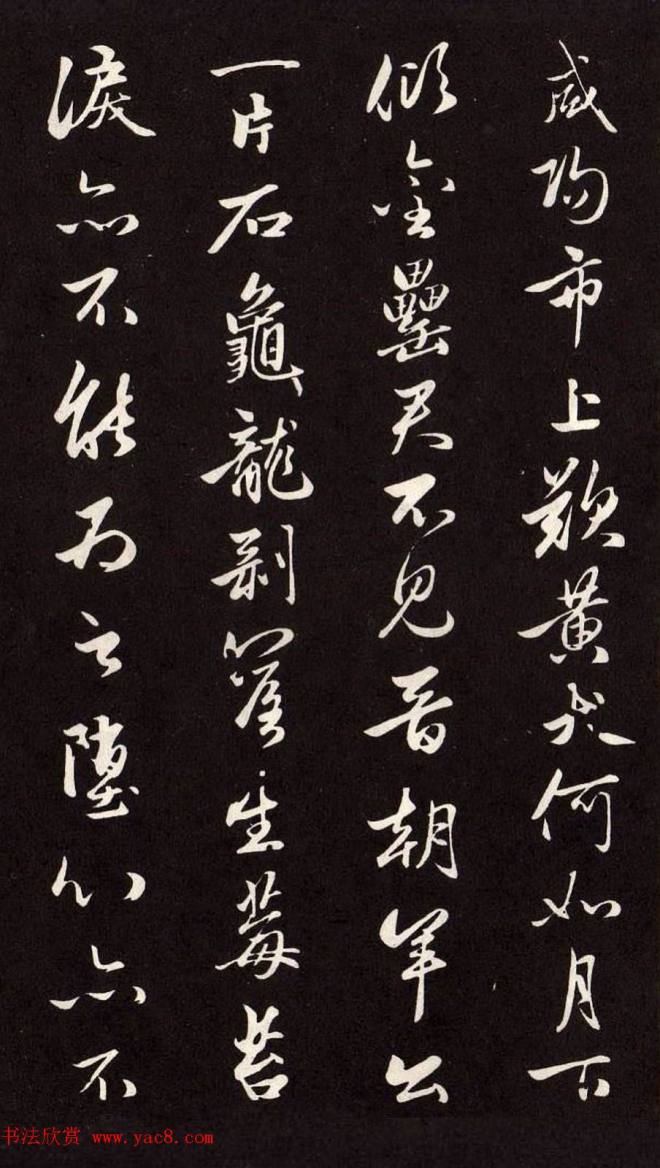 咸阳市上歎黄犬何如月下
倾金罍君不见晋朝羊公
一片石龜龍剥落生莓苔
淚亦不能为之墮心亦不
书法欣赏 www.yac8.com